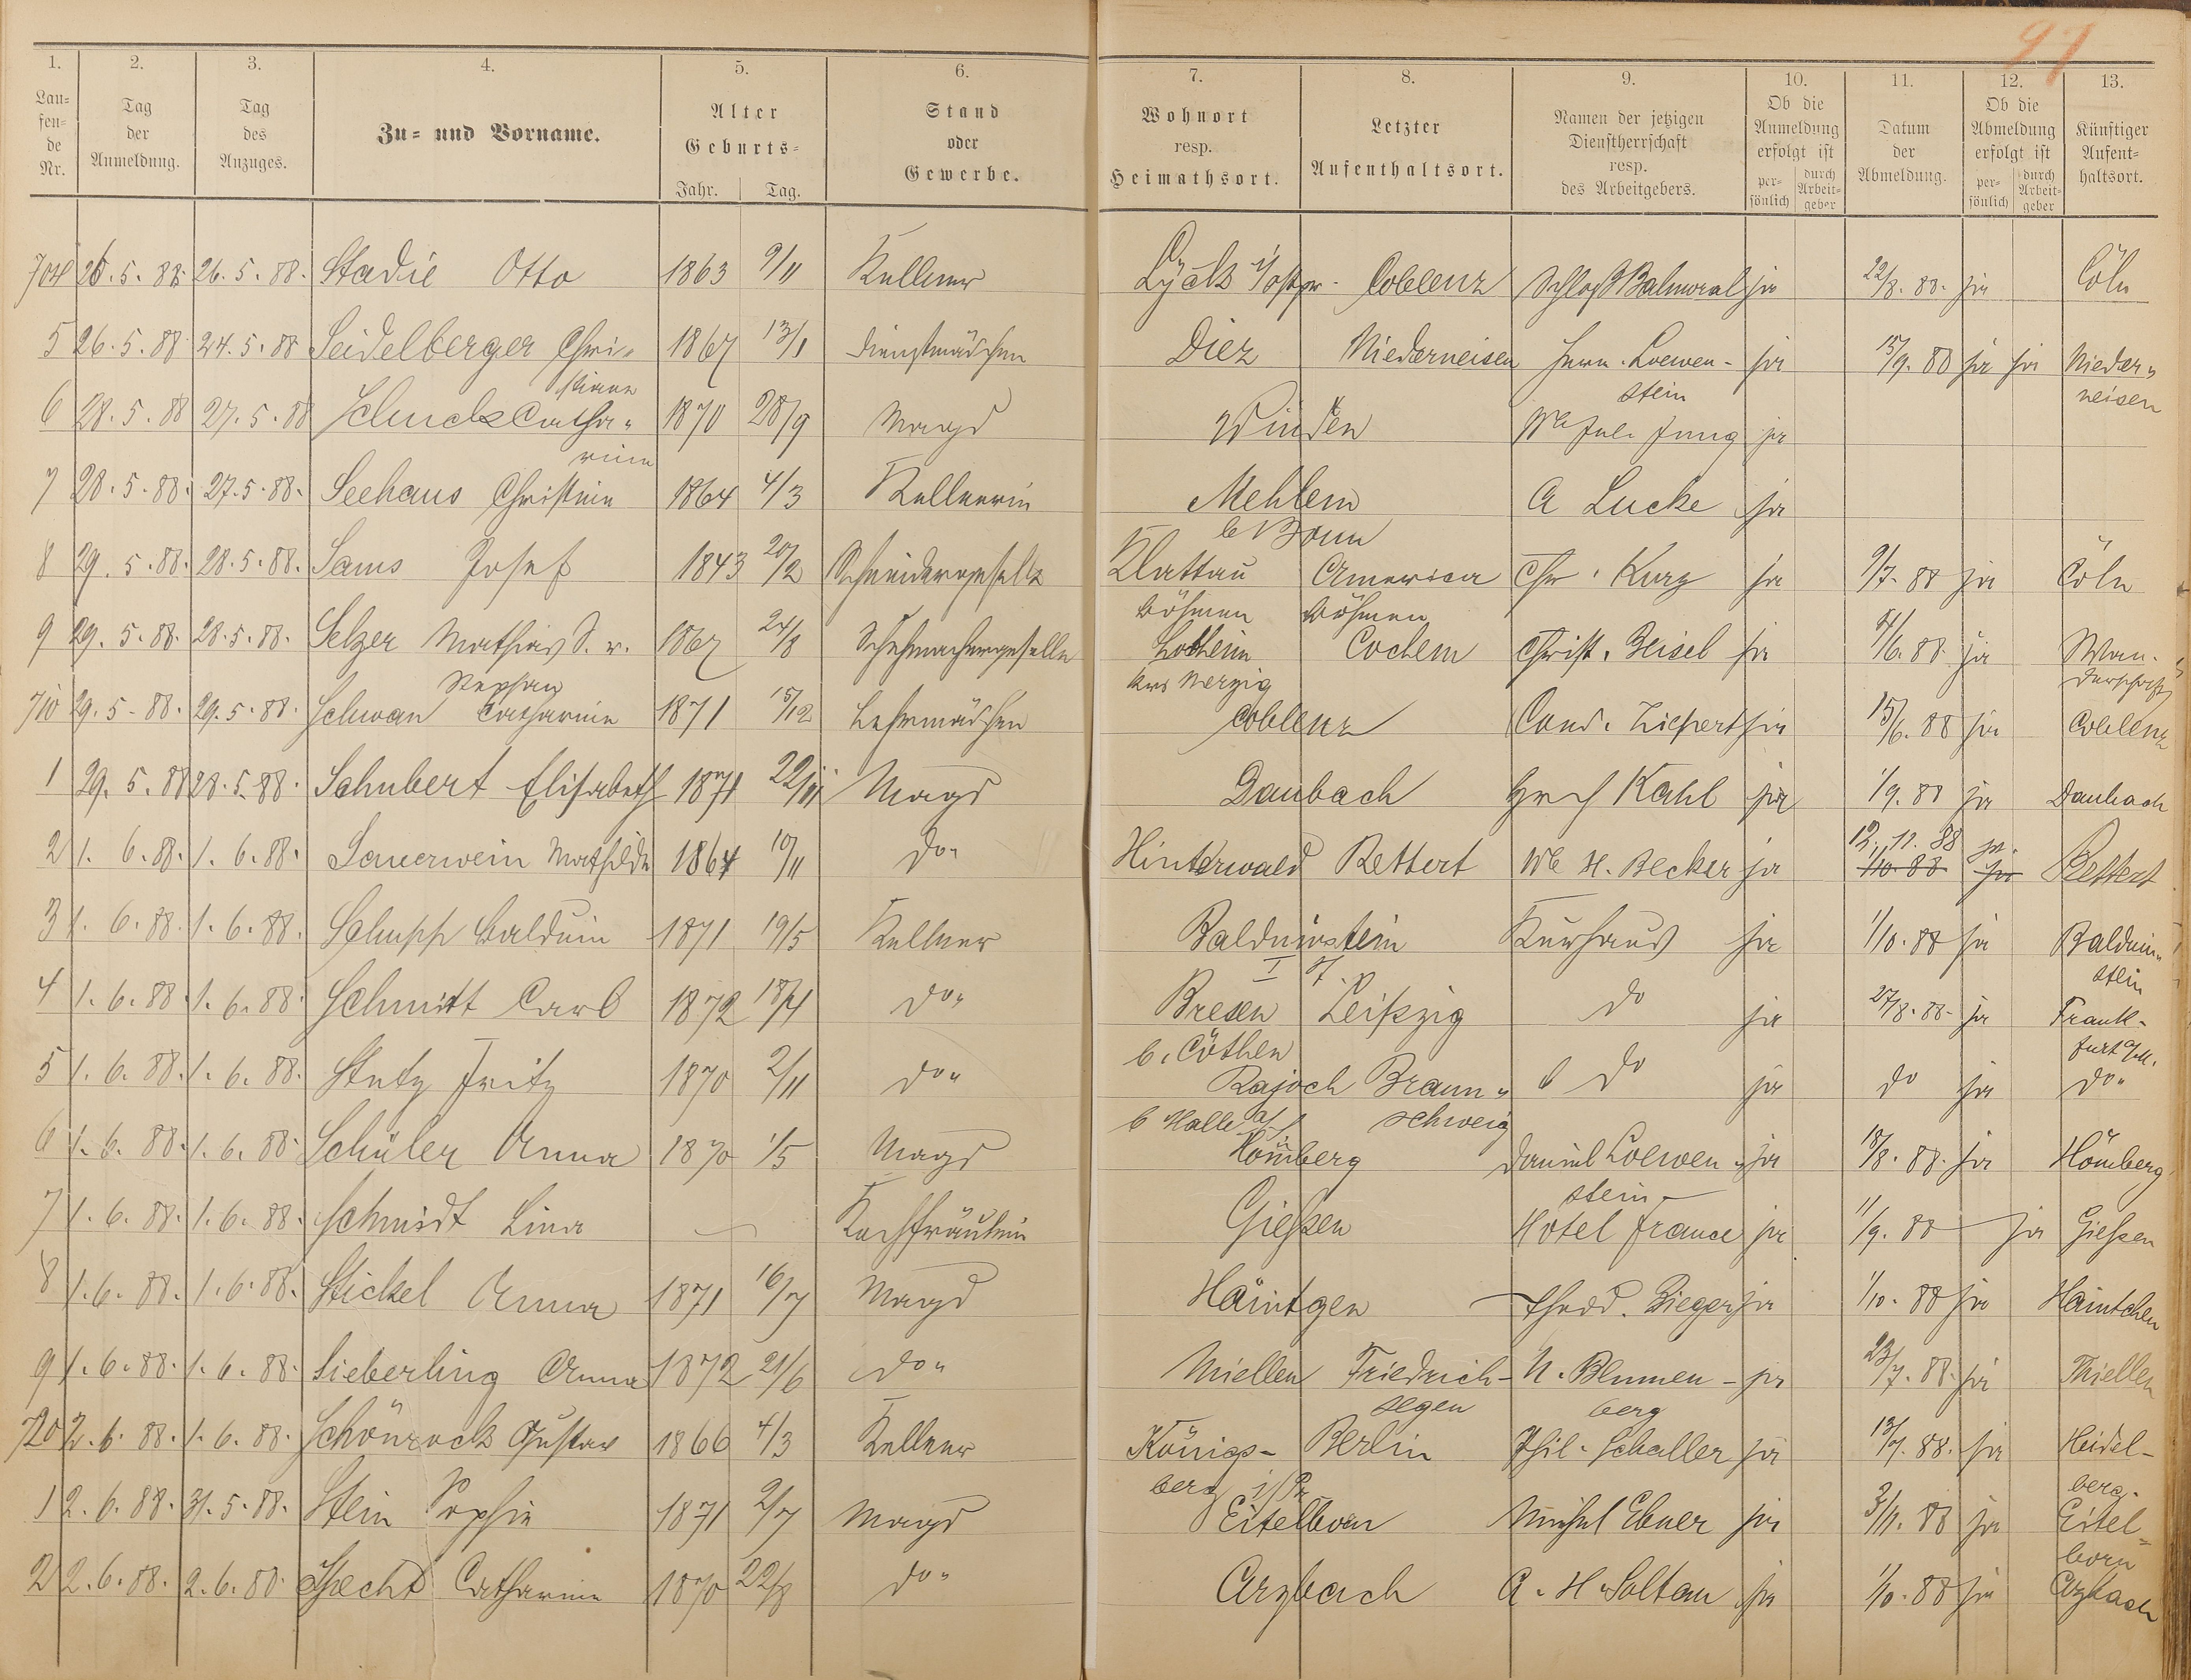 97
1. 2. 3. 4. 5. 6. 7. 8. 9. 10. 11. 12. 13.
Lau=
fen=
de
Nr.
Tag
der
Anmeldung.
Tag
des
Anzuges.
Zu= und Vorname.
Alter
Geburts=
Jahr. Tag.
Stand
oder
Gewerbe.
Wohnort
resp.
Heimathsort.
Letzter
Aufenthaltsort.
Namen der jetzigen
Dienstherrschaft
resp.
des Arbeitgebers.
Ob die
Anmeldung
erfolgt ist
per=
sönlich
durch
Arbeit=
geber
Datum
der
Abmeldung.
Ob die
Abmeldung
erfolgt ist
per=
sönlich
durch
Arbeit=
geber
Künftiger
Aufent=
haltsort.
704 26.5.88. 26.5.88. Stadie Otto 1863 9/11 Kellner Lyck Ostpr. Coblenz Schloß Balmoral ja 22/8.88. ja Cöln
5 26.5.88 24.5.88 Seidelberger Chri=
stiane 1867 13/1 Dienstmädchen Diez Niederneisen Herm. Loewen-
stein ja 15/9.88 ja ja Nieder=
neisen
6 28.5.88 27.5.88 Schuck Catha=
rina 1870 28/9 Magd Winden We Jul. Jung ja
7 28.5.88. 27.5.88. Seehaus Christine 1864 4/3 Kellnerin Mehlem
b Bonn A Lucke ja
8 29.5.88. 28.5.88. Sams Josef 1843 20/2 Schneidergeselle Klattau
Böhmen America
Böhmen Chr. Kurz ja 9/7.88 ja Cöln
9 29.5.88. 28.5.88. Selzer Mathias S. v.
Stephan 1867 24/8 Schuhmachergeselle
Krs Merzig Cochem Christ. Beisel ja 4/6.88 ja Wan-
derschaft
710 29.5.88. 29.5.88. Schwan Catharine 1871 15/12 Lehrmädchen Coblenz Cond. Liepert ja 15/6.88 ja Coblenz
1 29.5.88 28.5.88. Schubert Elisabeth 1871 22/11 Magd Daubach Hrch Kahl ja 1/9.88 ja Daubach
2 1.6.88. 1.6.88. Sauerwein Mathilde 1864 10/11 do" Hinterwald Rettert We H. Becker ja 12.11.88 ja.
1/10.88 ja Rettert
3 1.6.88. 1.6.88. Schupp Balduin 1871 19/5 Kellner Balduinstein Kurhaus ja 1/10.88 ja Balduin=
stein
4 1.6.88. 1.6.88. Schmitt Carl 1872 18/4 do" Bresen
b. Cöthen Leipzig do ja 27/8.88. ja Frank-
furt a/M.
5 1.6.88. 1.6.88. Stutz Fritz 1870 2/11 do" Rajoch
b Halle a/S Braun=
schweig do ja do ja do"
6 1.6.88. 1.6.88. Schüler Anna 1870 1/5 Magd Hömberg Daniel Loewen=
stein ja 18/8.88. ja Hömberg
7 1.6.88. 1.6.88. Schmidt Lina — Kochfräulein Gießen Hotel france ja 11/9.88 ja Gießen
8 1.6.88. 1.6.88. Stickel Anna 1871 16/7 Magd Haintgen Theod. Bieger ja 1/10.88 ja Haintchen
9 1.6.88. 1.6.88. Sieberling Anna 1872 21/6 do" Miellen Friedrich-
segen N. Blumen-
berg ja 23/7.88. ja Miellen
720 2.6.88. 1.6.88. Schönrock Gustav 1866 4/3 Kellner Königs-
berg i/Pr Berlin Phil. Schaller ja 13/7.88. ja Heidel-
berg.
1 2.6.88. 31.5.88. Stein Sophie 1871 2/7 Magd Eitelborn Michel Ebner ja 3/11.88 ja Eitel=
born
2 2.6.88. 2.6.88. Specht Catharine 1870 22/8 do" Arzbach A. H. Soltau ja 1/10.88 ja Arzbach